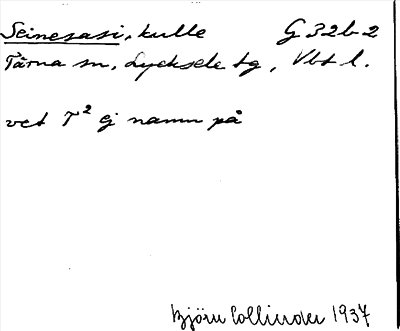 Seinesasi, kulle G 32b2
Tärna sn, Lycksele tg, Vbt l.
vet T² ej namn på
Björn Collinder 1937